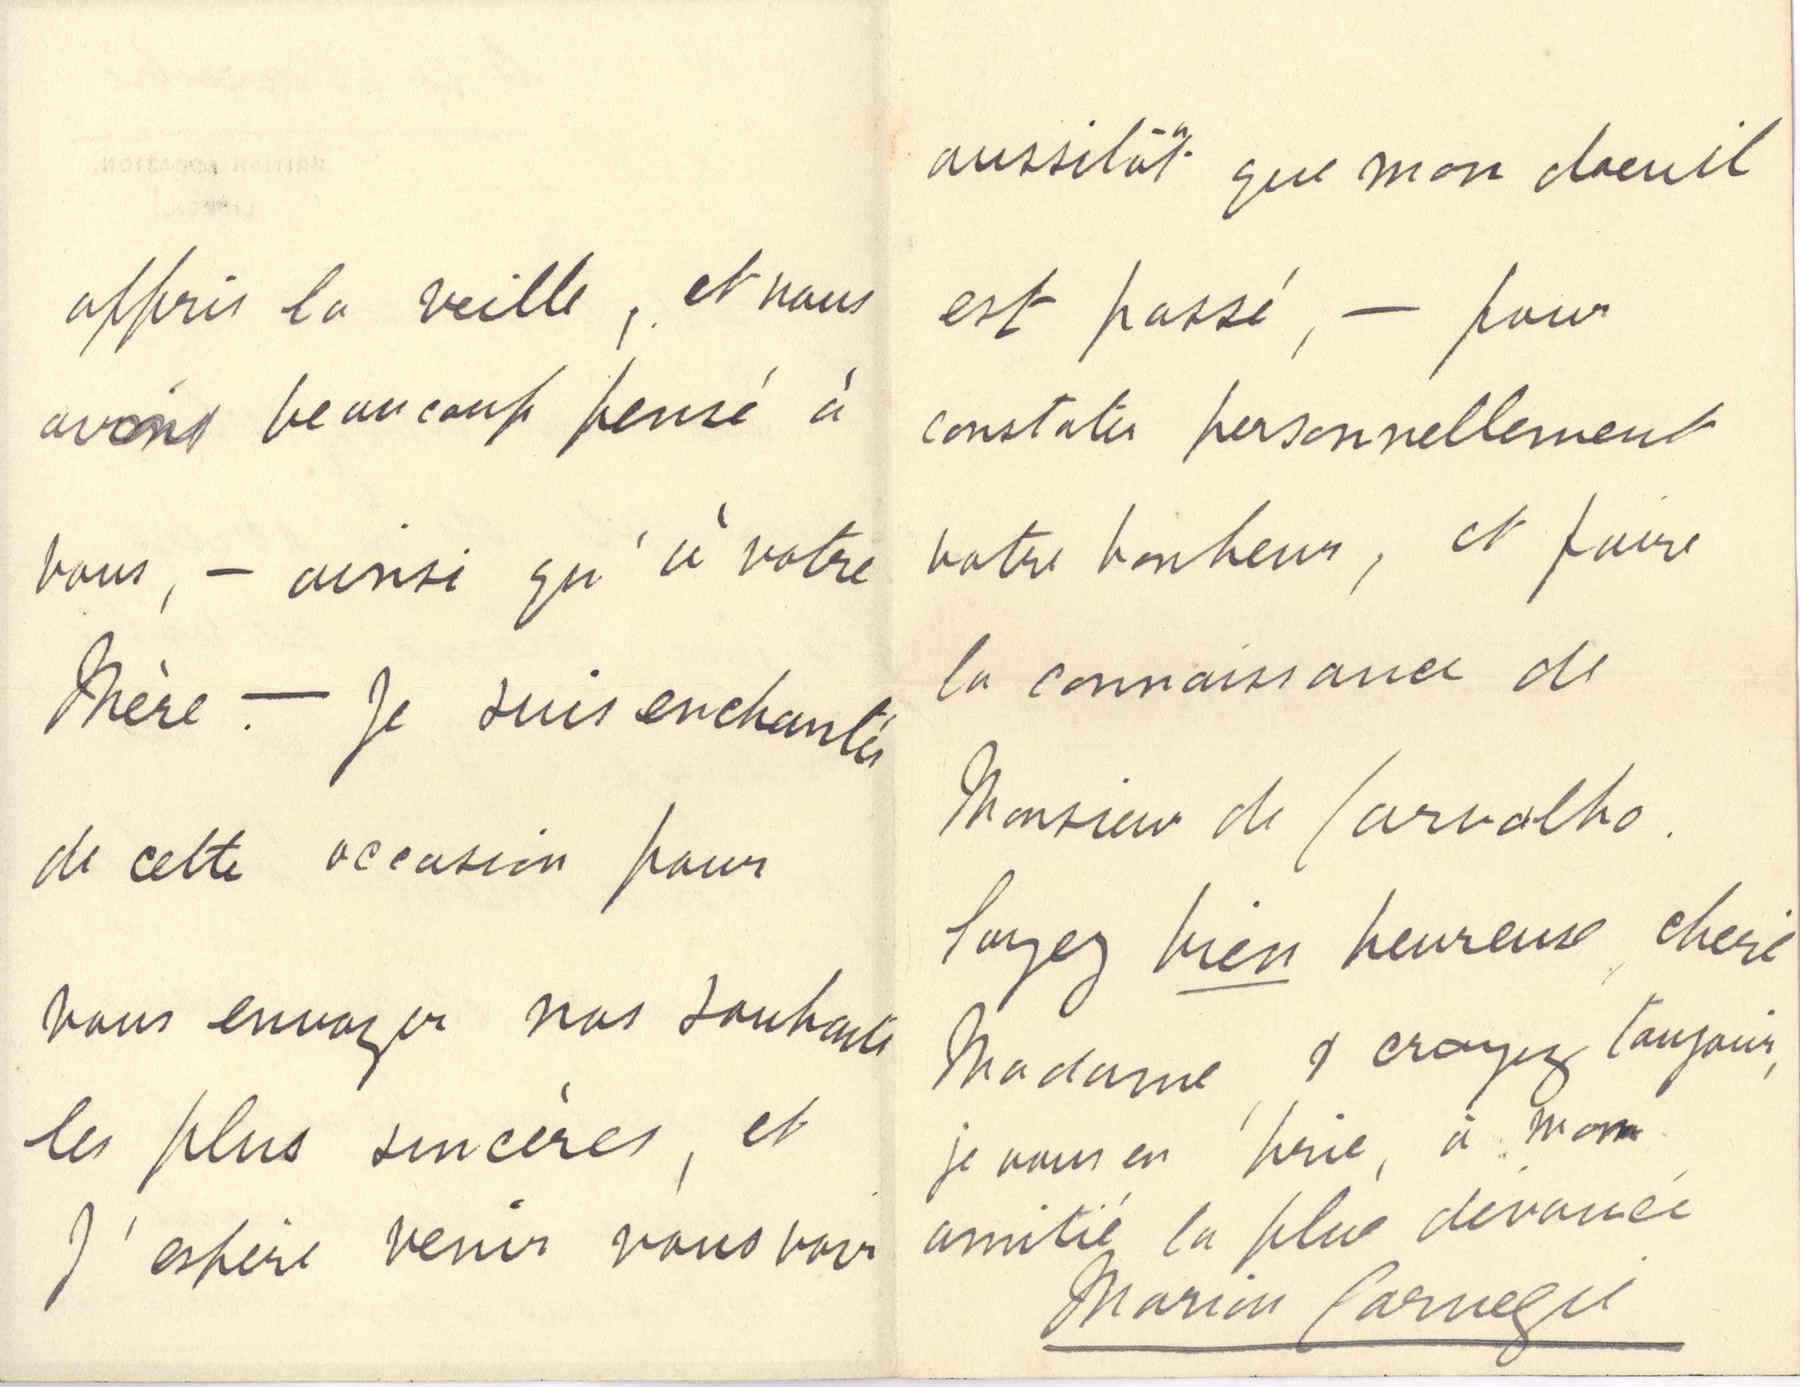 appris la veille, et nous
avons beaucoup pensé à
vous, — ainsi qu'à votre
Mère. — Je suis enchantée
de cette occasion pour
vous envoyer nos souhaits
les plus sincères, et
J'espère venir vous voir
aussitôt que mon doeuil
est passé, — pour
constater personnellement
votre bonheur, et faire
la connaissance de
Monsieur de Carvalho.
Soyez bien heureuse, cherie
Madame, & croyez toujours,
je vous en prie, à mon
amitié la plus dévouée
Marion Carnegie